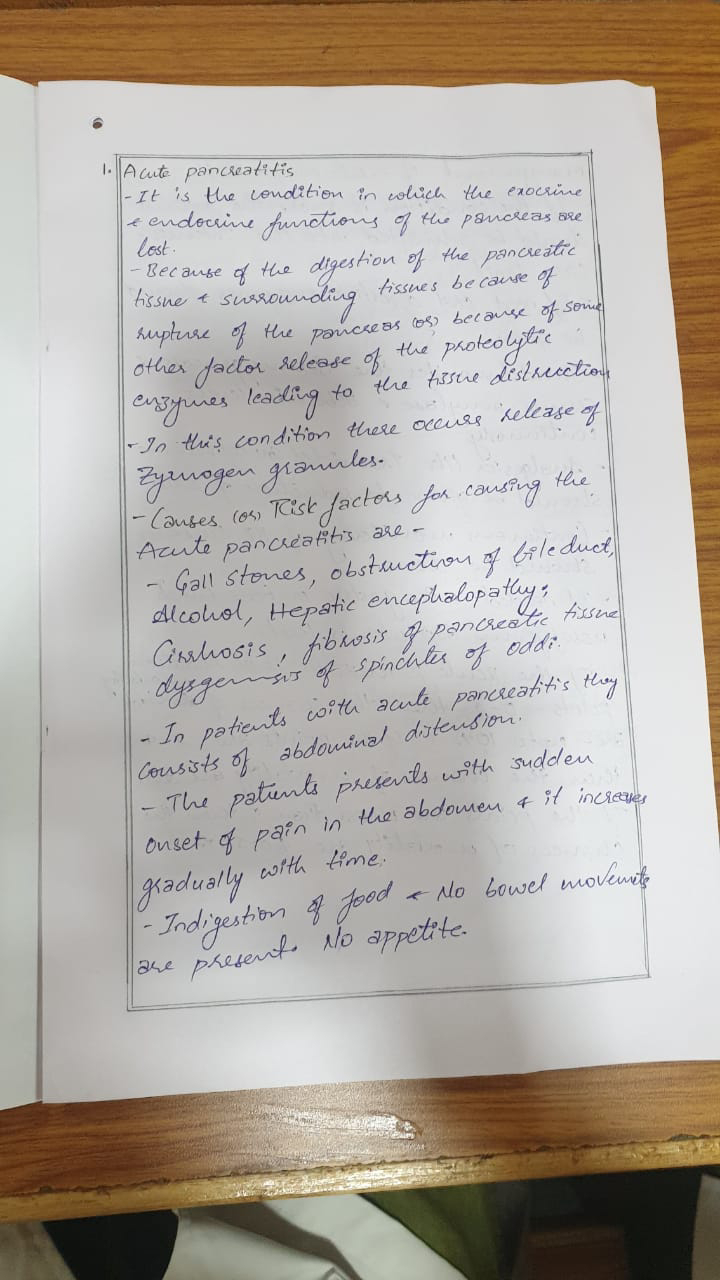 1. Acute pancreatitis
- It is the condition in which the exocrine
& endocrine functions of the pancreas are
lost.
- Because of the digestion of the pancreatic
tissue & surrounding tissues because of
rupture of the pancreas (or) because of some
other factor release of the proteolytic
enzymes leading to the tissue distruction
- In this condition there occurs release of
Zymogen granules.
- Causes (or) Risk factors for causing the
Acute pancreatitis are -
- Gall stones, obstruction of bile duct,
Alcohol, Hepatic encephalopathy,
Cirrhosis, fibrosis of pancreatic tissue
of spinchter of oddi.
- In patients with acute pancreatitis they
consists of abdominal distension.
- The patients presents with sudden
onset of pain in the abdomen & it increases
gradually with time.
- Indigestion of food & No bowel movements
are present. No appetite.